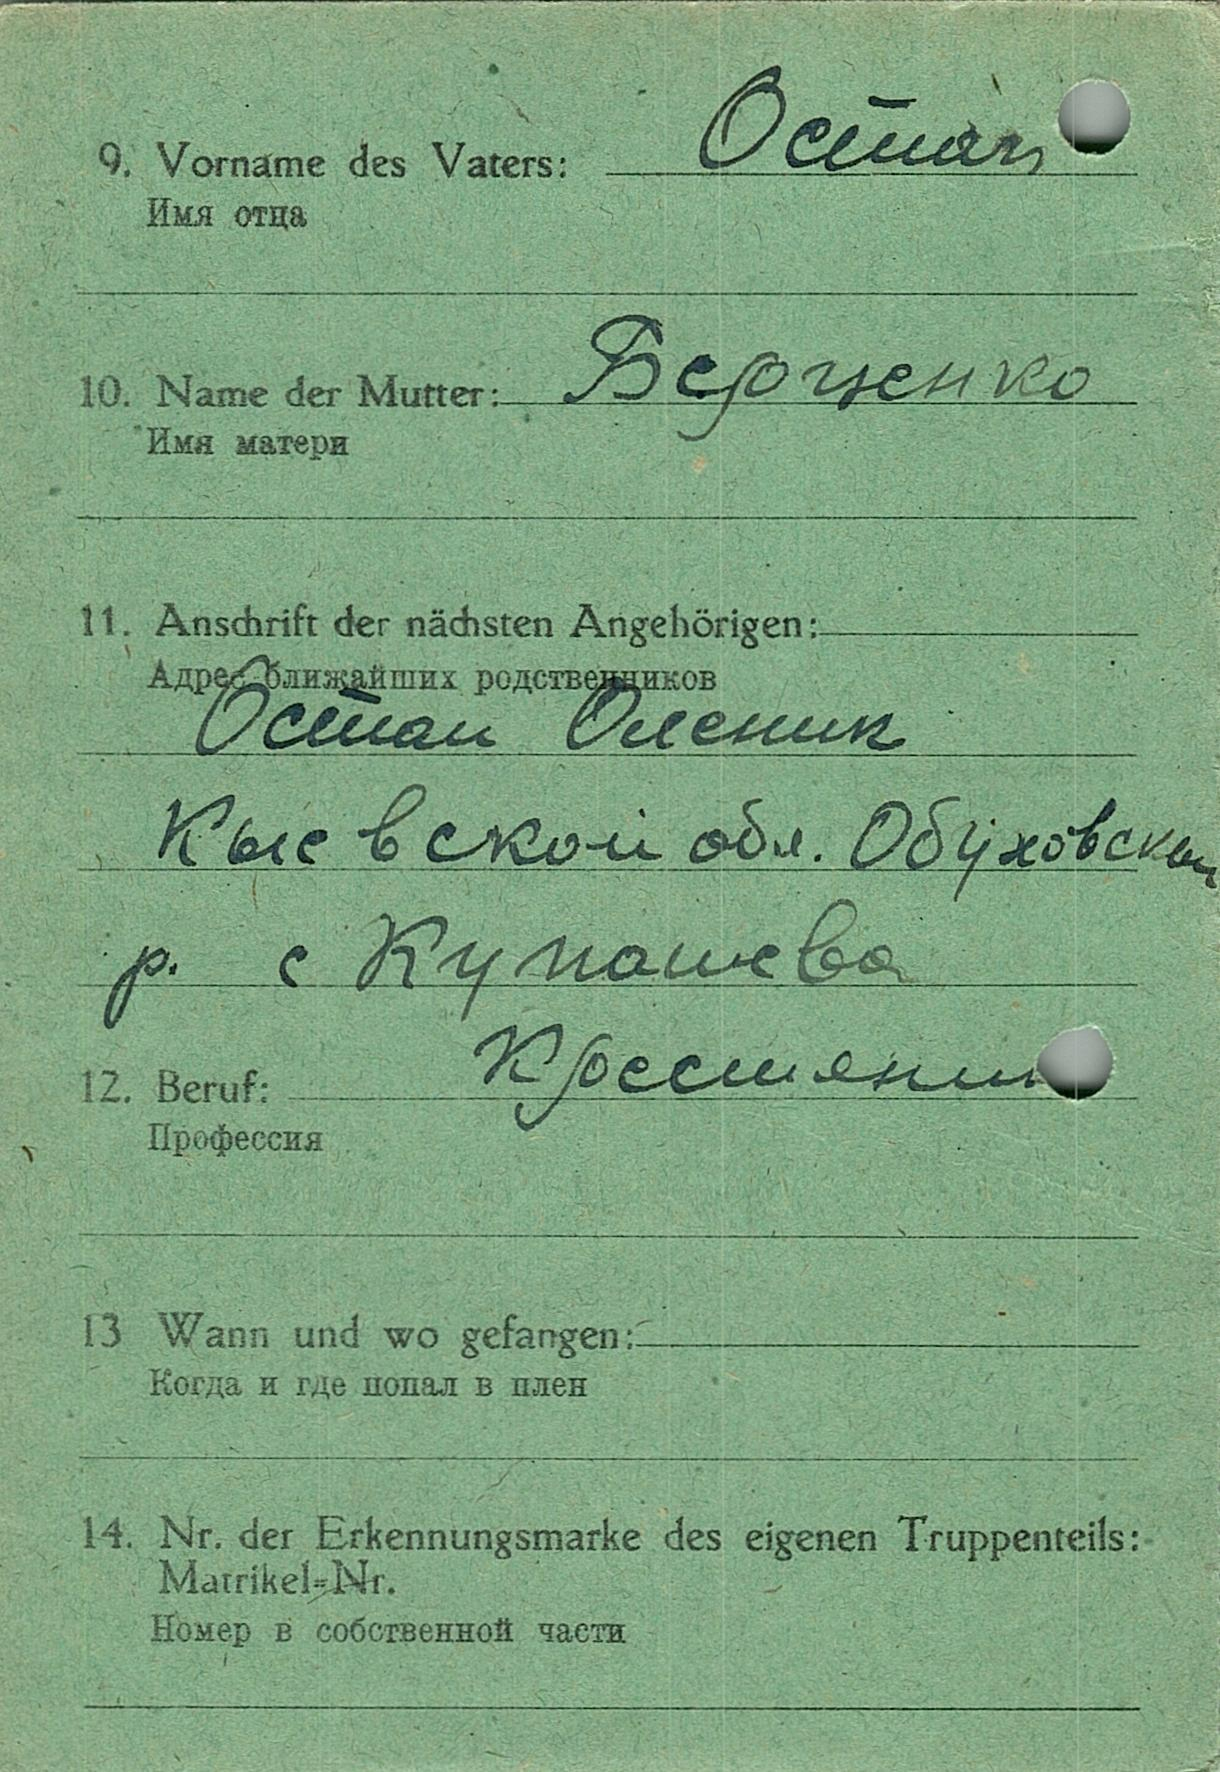 9. Vorname des Vaters: Остап
Имя отца
10. Name der Mutter: Берченко
Имя матери
11. Anschrift der nächsten Angehörigen:
Адрес ближайших родственников
Остап Олсник
Кыевской обл. Обуховским
р. с Купашева
12. Beruf: Кресшянин
Профессия
13 Wann und wo gefangen:
Когда и где попал в плен
14. Nr. der Erkennungsmarke des eigenen Truppenteils:
Matrikel=Nr.
Номер в собственной части